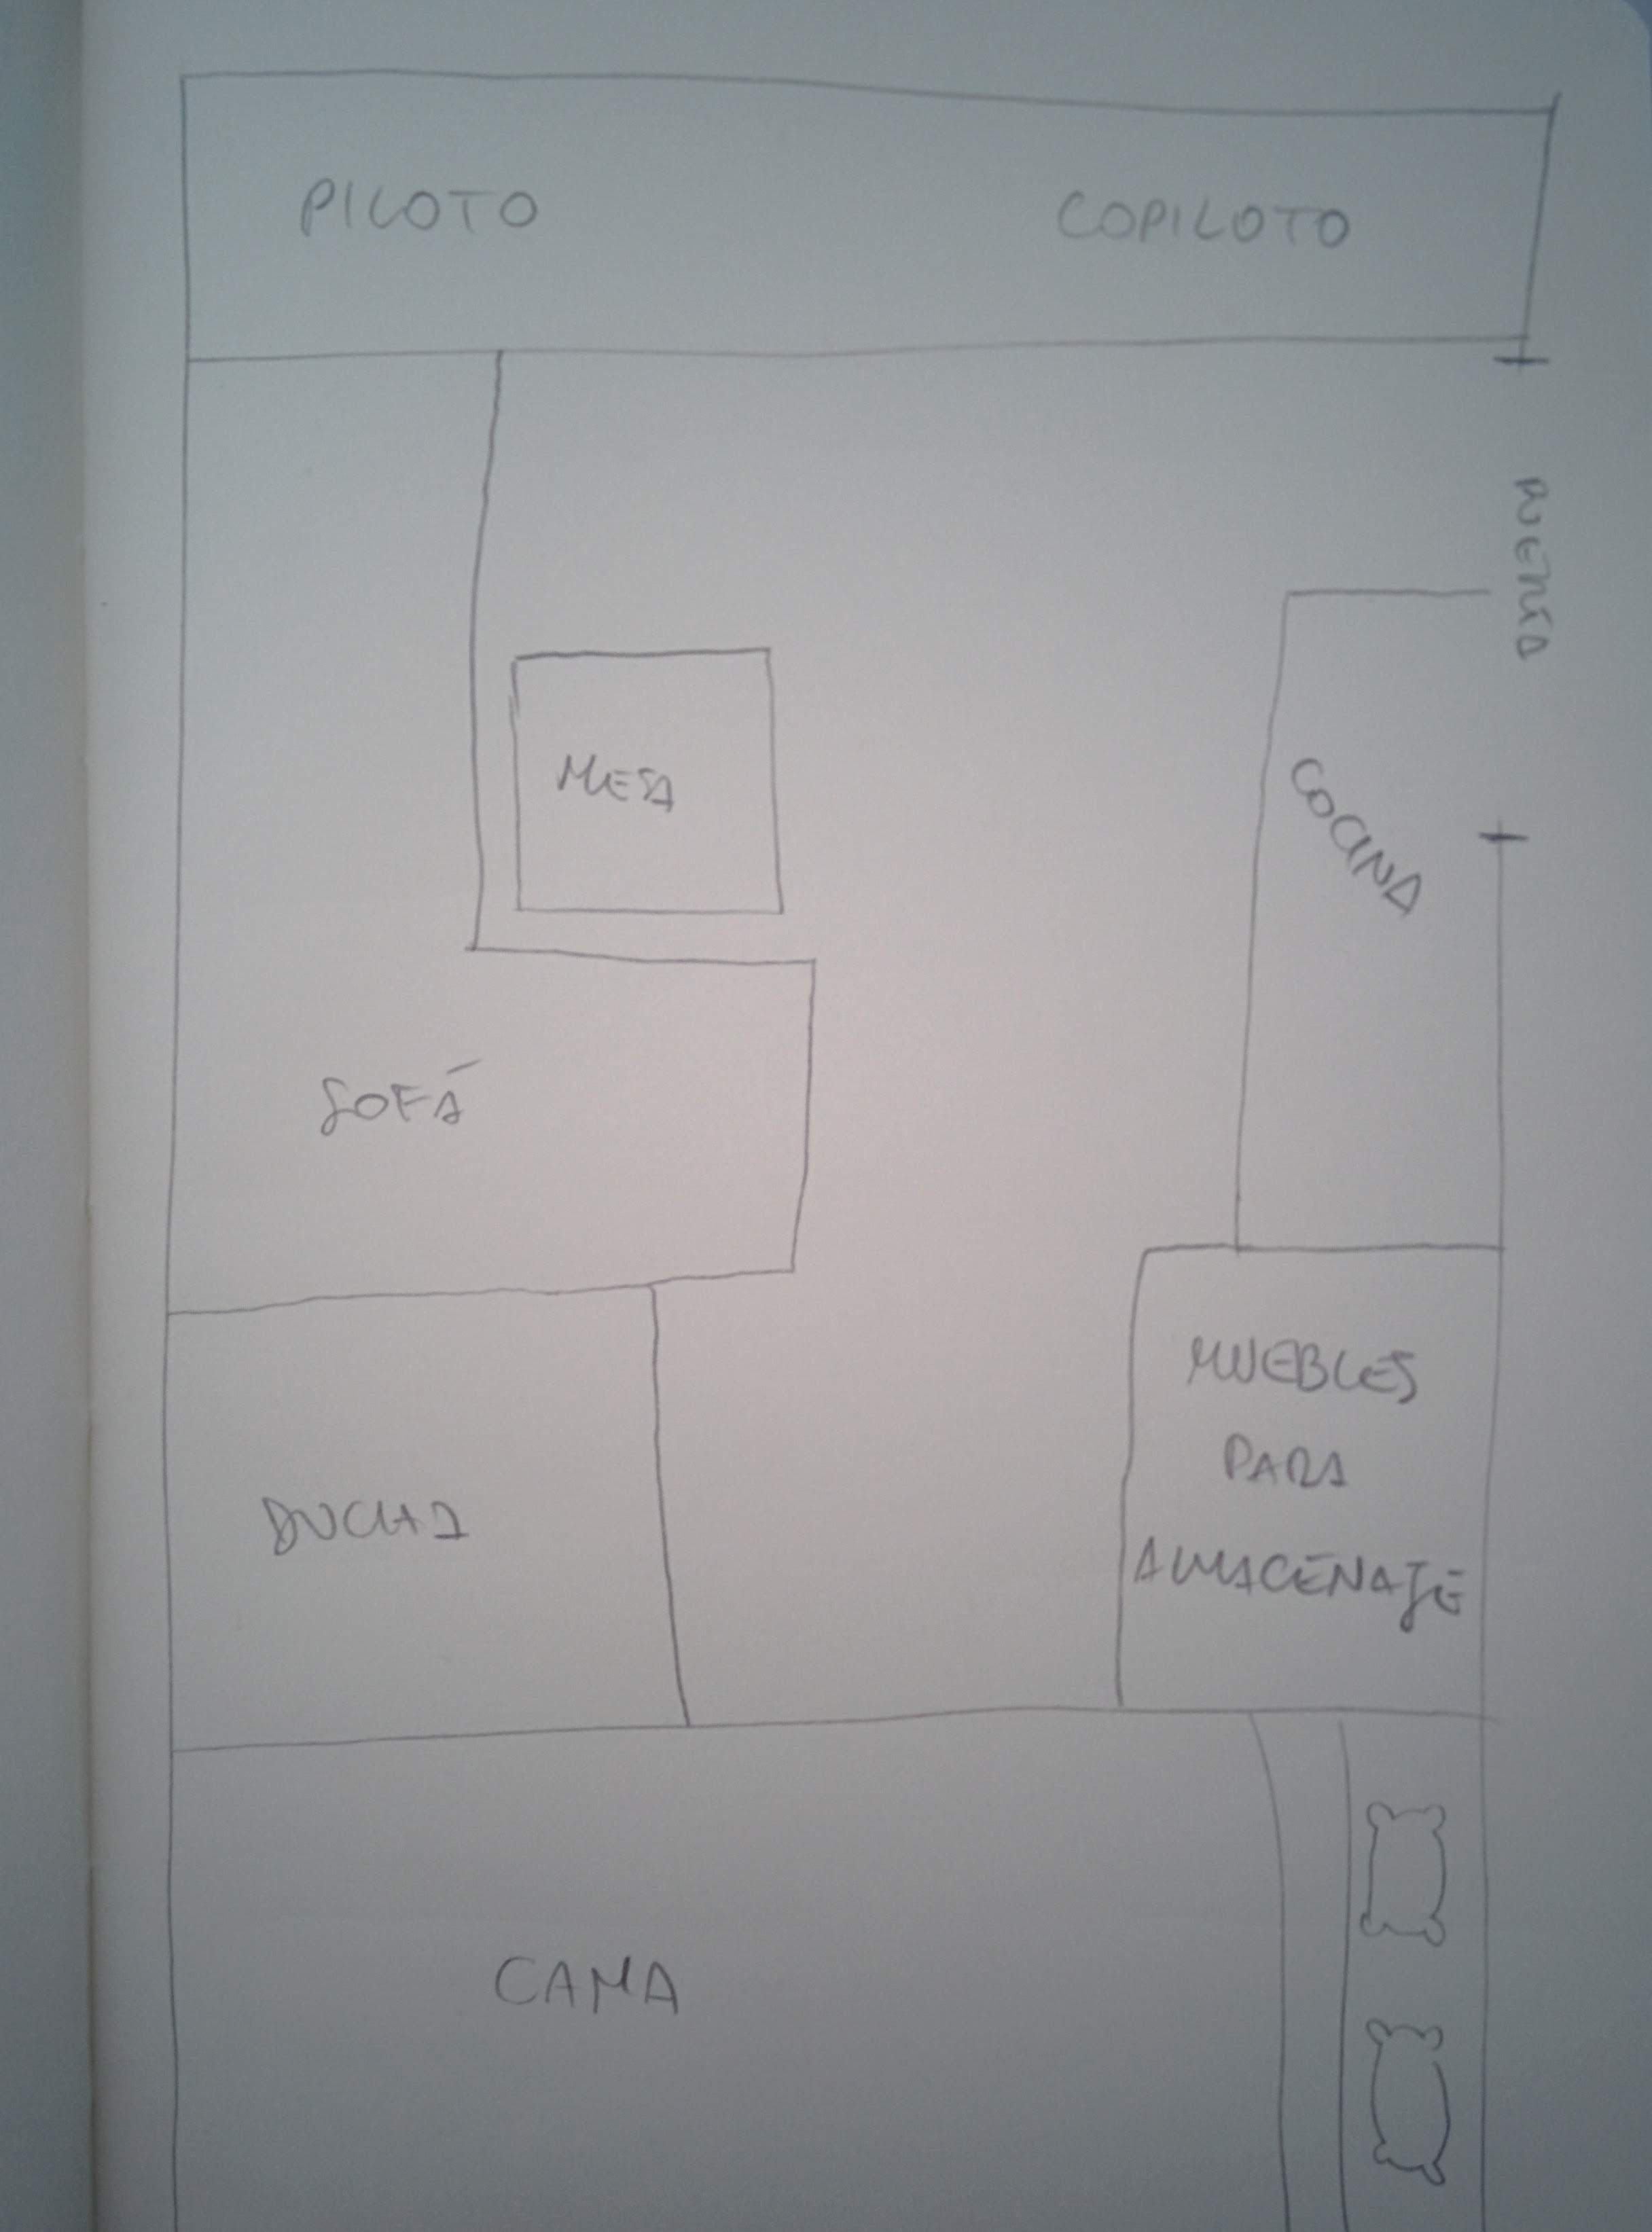 PILOTO
COPILOTO
PUERTA
MESA
COCINA
SOFÁ
MUEBLES
PARA
ALMACENAJE
DUCHA
CAMA